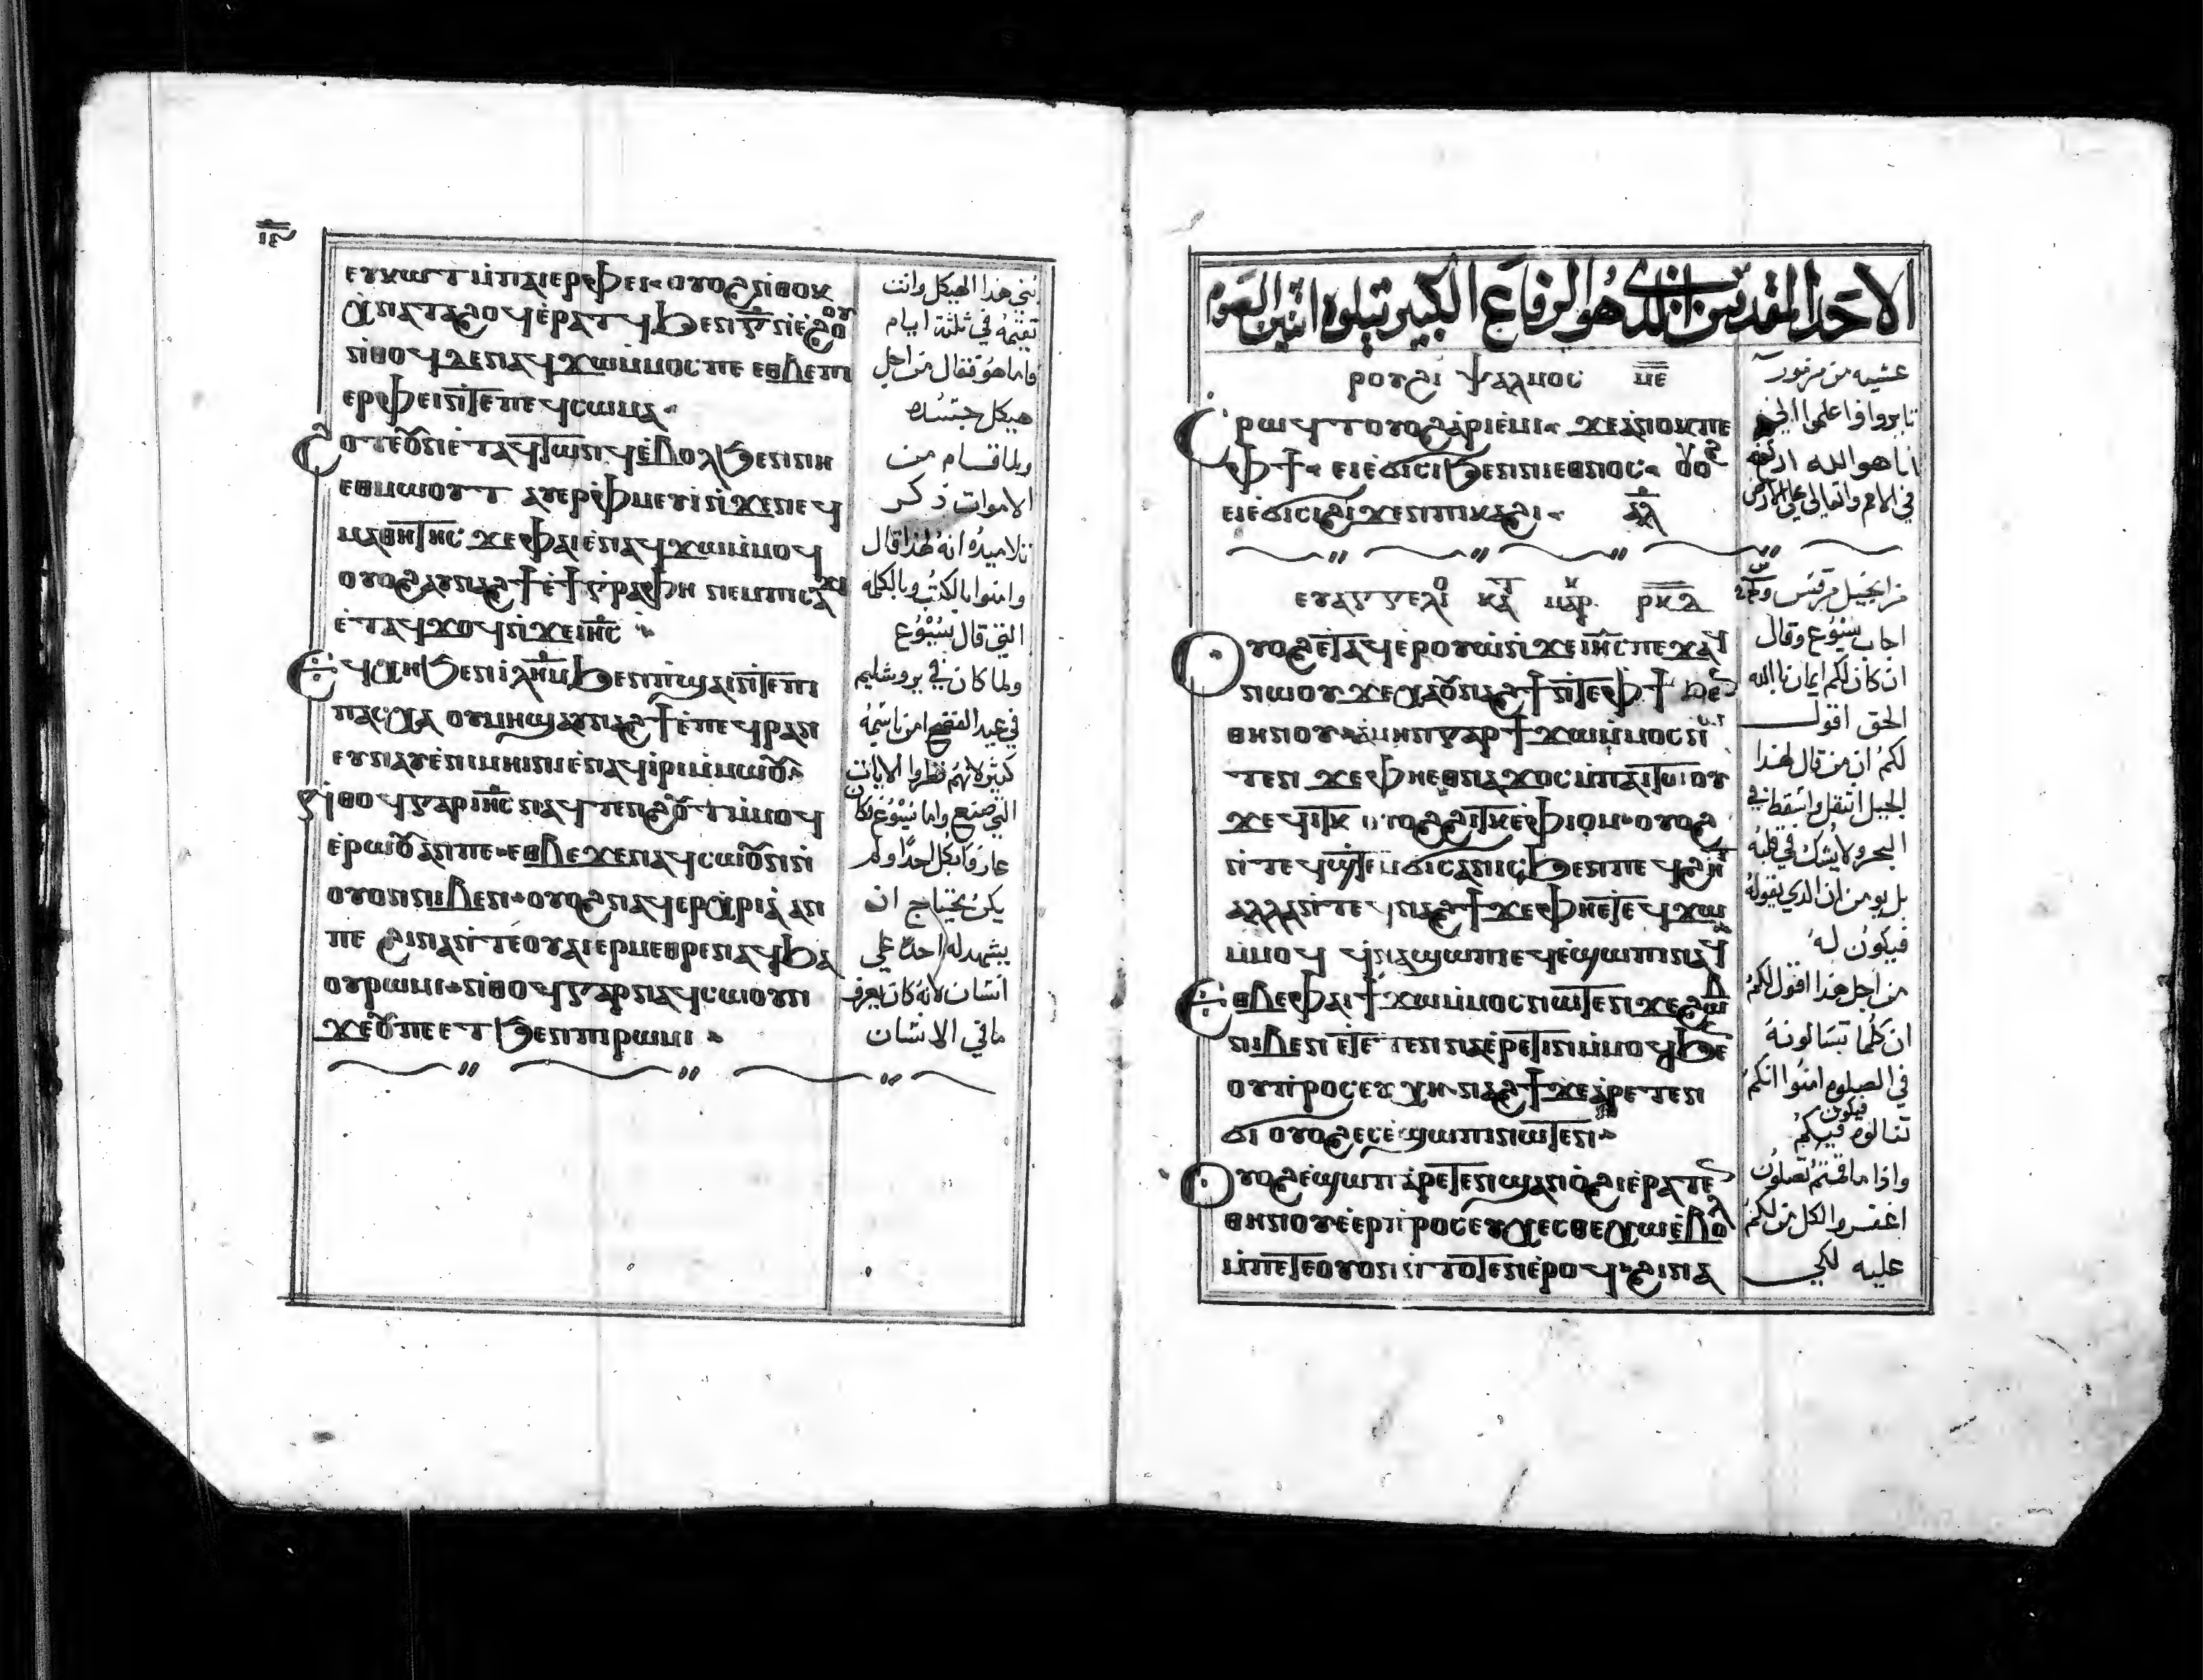 ⲉⲩⲕⲱⲧ ⲙ̀ⲡⲁⲓⲉⲣⲫⲉⲓ· ⲟⲩⲟϩ ⲛ̀ⲑⲟⲕ
ⲭ̀ⲛⲁⲧⲁϩⲟϥ ⲉ̀ⲣⲁⲧϥ ϧⲉⲛ ⲅ̅ ⲛ̀ⲉ̀ϩⲟⲟⲩ
ⲛ̀ⲑⲟϥ ⲇⲉ ⲛⲁϥϫⲱ ⲙ̀ⲙⲟⲥ ⲡⲉ ⲉⲑⲃⲉ ⲡⲓ
ⲉⲣⲫⲉⲓ ⲛ̀ⲧⲉ ⲡⲉϥⲥⲱⲙⲁ·
ϩⲟⲧⲉ ⲟⲩⲛ ⲉ̀ⲧⲁϥⲧⲱⲛϥ ⲉ̀ⲃⲟⲗ ϧⲉⲛ ⲛⲏ
ⲉⲑⲙⲱⲟⲩⲧ ⲁⲩⲉⲣⲫ̀ⲙⲉⲩⲓ ⲛ̀ϫⲉ ⲛⲉϥ
ⲙⲁⲑⲏⲧⲏⲥ ϫⲉ ⲫⲁⲓ ⲉ̀ⲛⲁϥϫⲱ ⲙ̀ⲙⲟϥ
ⲟⲩⲟϩ ⲁⲩⲛⲁϩϯ ⲉ̀ϯⲅ̀ⲣⲁⲫⲏ ⲛⲉⲙ ⲡⲓⲥⲁϫⲓ
ⲉ̀ⲧⲁϥϫⲟϥ ⲛ̀ϫⲉ ⲓⲏ̅ⲥ̅
ⲉϥⲭⲏ ϧⲉⲛ ⲓⲗⲏ̅ⲙ̅ ϧⲉⲛ ⲡ̀ϣⲁⲓ ⲛ̀ⲧⲉ ⲡⲓ
ⲡⲁⲥⲭⲁ ⲟⲩⲙⲏϣ ⲁⲩⲛⲁϩϯ ⲉ̀ⲡⲉϥⲣⲁⲛ
ⲉⲩⲛⲁⲩ ⲉ̀ⲛⲓⲙⲏⲓⲛⲓ ⲉ̀ⲛⲁϥⲓ̀ⲣⲓ ⲙ̀ⲙⲱⲟⲩ
ⲛ̀ⲑⲟϥ ⲅⲁⲣ ⲓⲏ̅ⲥ̅ ⲛⲁϥⲧⲉⲛϩⲟⲩⲧ ⲙ̀ⲙⲟϥ
ⲉ̀ⲣⲱⲟⲩ ⲁⲛ ⲡⲉ· ⲉⲑⲃⲉ ϫⲉ ⲛⲁϥⲥⲱⲟⲩⲛ ⲛ̀
ⲟⲩⲟⲛ ⲛⲓⲃⲉⲛ· ⲟⲩⲟϩ ⲛⲁϥⲉⲣⲭ̀ⲣⲓⲁ ⲁⲛ
ⲡⲉ ϩⲓⲛⲁ ⲛ̀ⲧⲉ ⲟⲩⲁⲓ ⲉⲣⲙⲉⲑⲣⲉ ⲛⲁϥ ϧⲁ
ⲟⲩⲣⲱⲙⲓ· ⲛ̀ⲑⲟϥ ⲅⲁⲣ ⲛⲁϥⲥⲱⲟⲩⲛ
ϫⲉ ⲟⲩ ⲡⲉ ⲉⲧ ϧⲉⲛ ⲡⲓⲣⲱⲙⲓ
بني هذا الهيكل وانت
تقيمه في ثلثة ايام
فاما هو فقال من اجل
هيكل جسده
ولما قام من
الاموات ذكر
تلاميده انه لهذا قال
وامنوا بالكتب وبالكلمه
التي قال يسوع
ولما كان في يروشليم
في عيد الفصح امن باسمه
كثير لانهم نظروا الايات
التي صنع واما يسوع فكان
عارفا بكل احد ولم
يكن يحتاج ان
يشهد له احد علي
انسان لانه كان يعرف
ما في الانسان
الاحد المقدس الذي هو الرفاع الكبير تتلوه اثنين الصوم
ⲣⲟⲩϩⲓ ⲯⲁⲗⲙⲟⲥ ⲙ̅ⲉ̅
ⲥⲣⲱϥⲧ ⲟⲩⲟϩ ⲁ̀ⲣⲓⲉ̀ⲙⲓ· ϫⲉ ⲁ̀ⲛⲟⲕ ⲡⲉ
ⲫϯ· ⲉⲓⲉ̀ϭⲓⲥⲓ ϧⲉⲛ ⲛⲓⲉⲑⲛⲟⲥ· ⲟⲩⲟϩ
ⲉⲓⲉ̀ϭⲓⲥⲓ ϩⲓϫⲉⲛ ⲡⲓⲕⲁϩⲓ· ⲁ̅ⲗ̅
ⲉⲩⲁⲅⲅⲉⲗⲓⲟ ⲕⲁⲧ ⲙⲁⲣⲕ ⲣ̅ⲕ̅ⲁ̅
ⲟⲩⲟϩ ⲉ̀ⲧⲁϥⲉ̀ⲣⲟⲩⲱ̀ ⲛ̀ϫⲉ ⲓⲏ̅ⲥ̅ ⲡⲉϫⲁϥ
ⲛⲱⲟⲩ ϫⲉ ⲭⲁ ⲟⲩⲛⲁϩϯ ⲛ̀ⲧⲉ ⲫϯ ϧⲉⲛ
ⲑⲏⲛⲟⲩ ⲁ̀ⲙⲏⲛ ⲅⲁⲣ ϯϫⲱ ⲙ̀ⲙⲟⲥ ⲛⲱ
ⲧⲉⲛ ϫⲉ ⲫⲏⲉⲑⲛⲁϫⲟⲥ ⲙ̀ⲡⲁⲓⲧⲱⲟⲩ
ϫⲉ ϥⲓⲧⲕ ⲟⲩⲟϩ ϩⲓⲧⲕ ⲉ̀ⲫⲓⲟⲙ· ⲟⲩⲟϩ
ⲛ̀ⲧⲉϥϣ̀ⲧⲉⲙϭⲓⲥⲁⲛⲓⲥ ϧⲉⲛ ⲡⲉϥϩⲏⲧ
ⲁⲗⲗⲁ ⲛ̀ⲧⲉϥⲛⲁϩϯ ϫⲉ ⲫⲏⲉⲧⲉϥϫⲱ
ⲙ̀ⲙⲟϥ ϥ̀ⲛⲁϣⲱⲡⲓ ⲉϥⲉ̀ϣⲱⲡⲓ ⲛⲁϥ
ⲉⲑⲃⲉ ⲫⲁⲓ ϯϫⲱ ⲙ̀ⲙⲟⲥ ⲛⲱⲧⲉⲛ ϫⲉ ϩⲱⲃ
ⲛⲓⲃⲉⲛ ⲉⲧⲉⲧⲉⲛⲛⲁⲉ̀ⲣⲉⲧⲓⲛ ⲙ̀ⲙⲟϥ ϧⲉⲛ
ⲟⲩⲡ̀ⲣⲟⲥⲉⲩⲭⲏ· ⲛⲁϩϯ ϫⲉ ⲁ̀ⲣⲉⲧⲉⲛ
ϭⲓ ⲟⲩⲟϩ ⲉⲥⲉ̀ϣⲱⲡⲓ ⲛⲱⲧⲉⲛ·
ⲟⲩⲟϩ ⲉ̀ϣⲱⲡ ⲁ̀ⲣⲉⲧⲉⲛϣⲁⲛⲟ̀ϩⲓ ⲉ̀ⲣⲁⲧⲉⲛ
ⲑⲏⲛⲟⲩ ⲉ̀ⲉⲣⲡ̀ⲣⲟⲥⲉⲩⲭⲉⲥⲑⲉ ⲭⲱ ⲉ̀ⲃⲟⲗ
ⲙ̀ⲡⲉⲧⲉ ⲟⲩⲟⲛ ⲛ̀ⲧⲱⲧⲉⲛ ⲉ̀ⲣⲟϥ· ϩⲓⲛⲁ
عشيه من مزمور
فاعلموا اني
انا هو الله ارتفع
في الامم واتعالى على الارض
من انجيل مرقس
اجاب يسوع وقال
ان كان لكم ايمان بالله
الحق اقول
لكم ان من قال لهذا
الجبل انتقل واسقط في
البحر ولا يشك في قلبه
بل يومن ان الذي يقوله
فيكون له
من اجل هذا اقول لكم
ان كلما تسالونه
في الصلوه امنوا انكم
تنالوه فيكون لكم
واذا ما قمتم تصلون
اغفروا لكل من لكم
عليه لكي